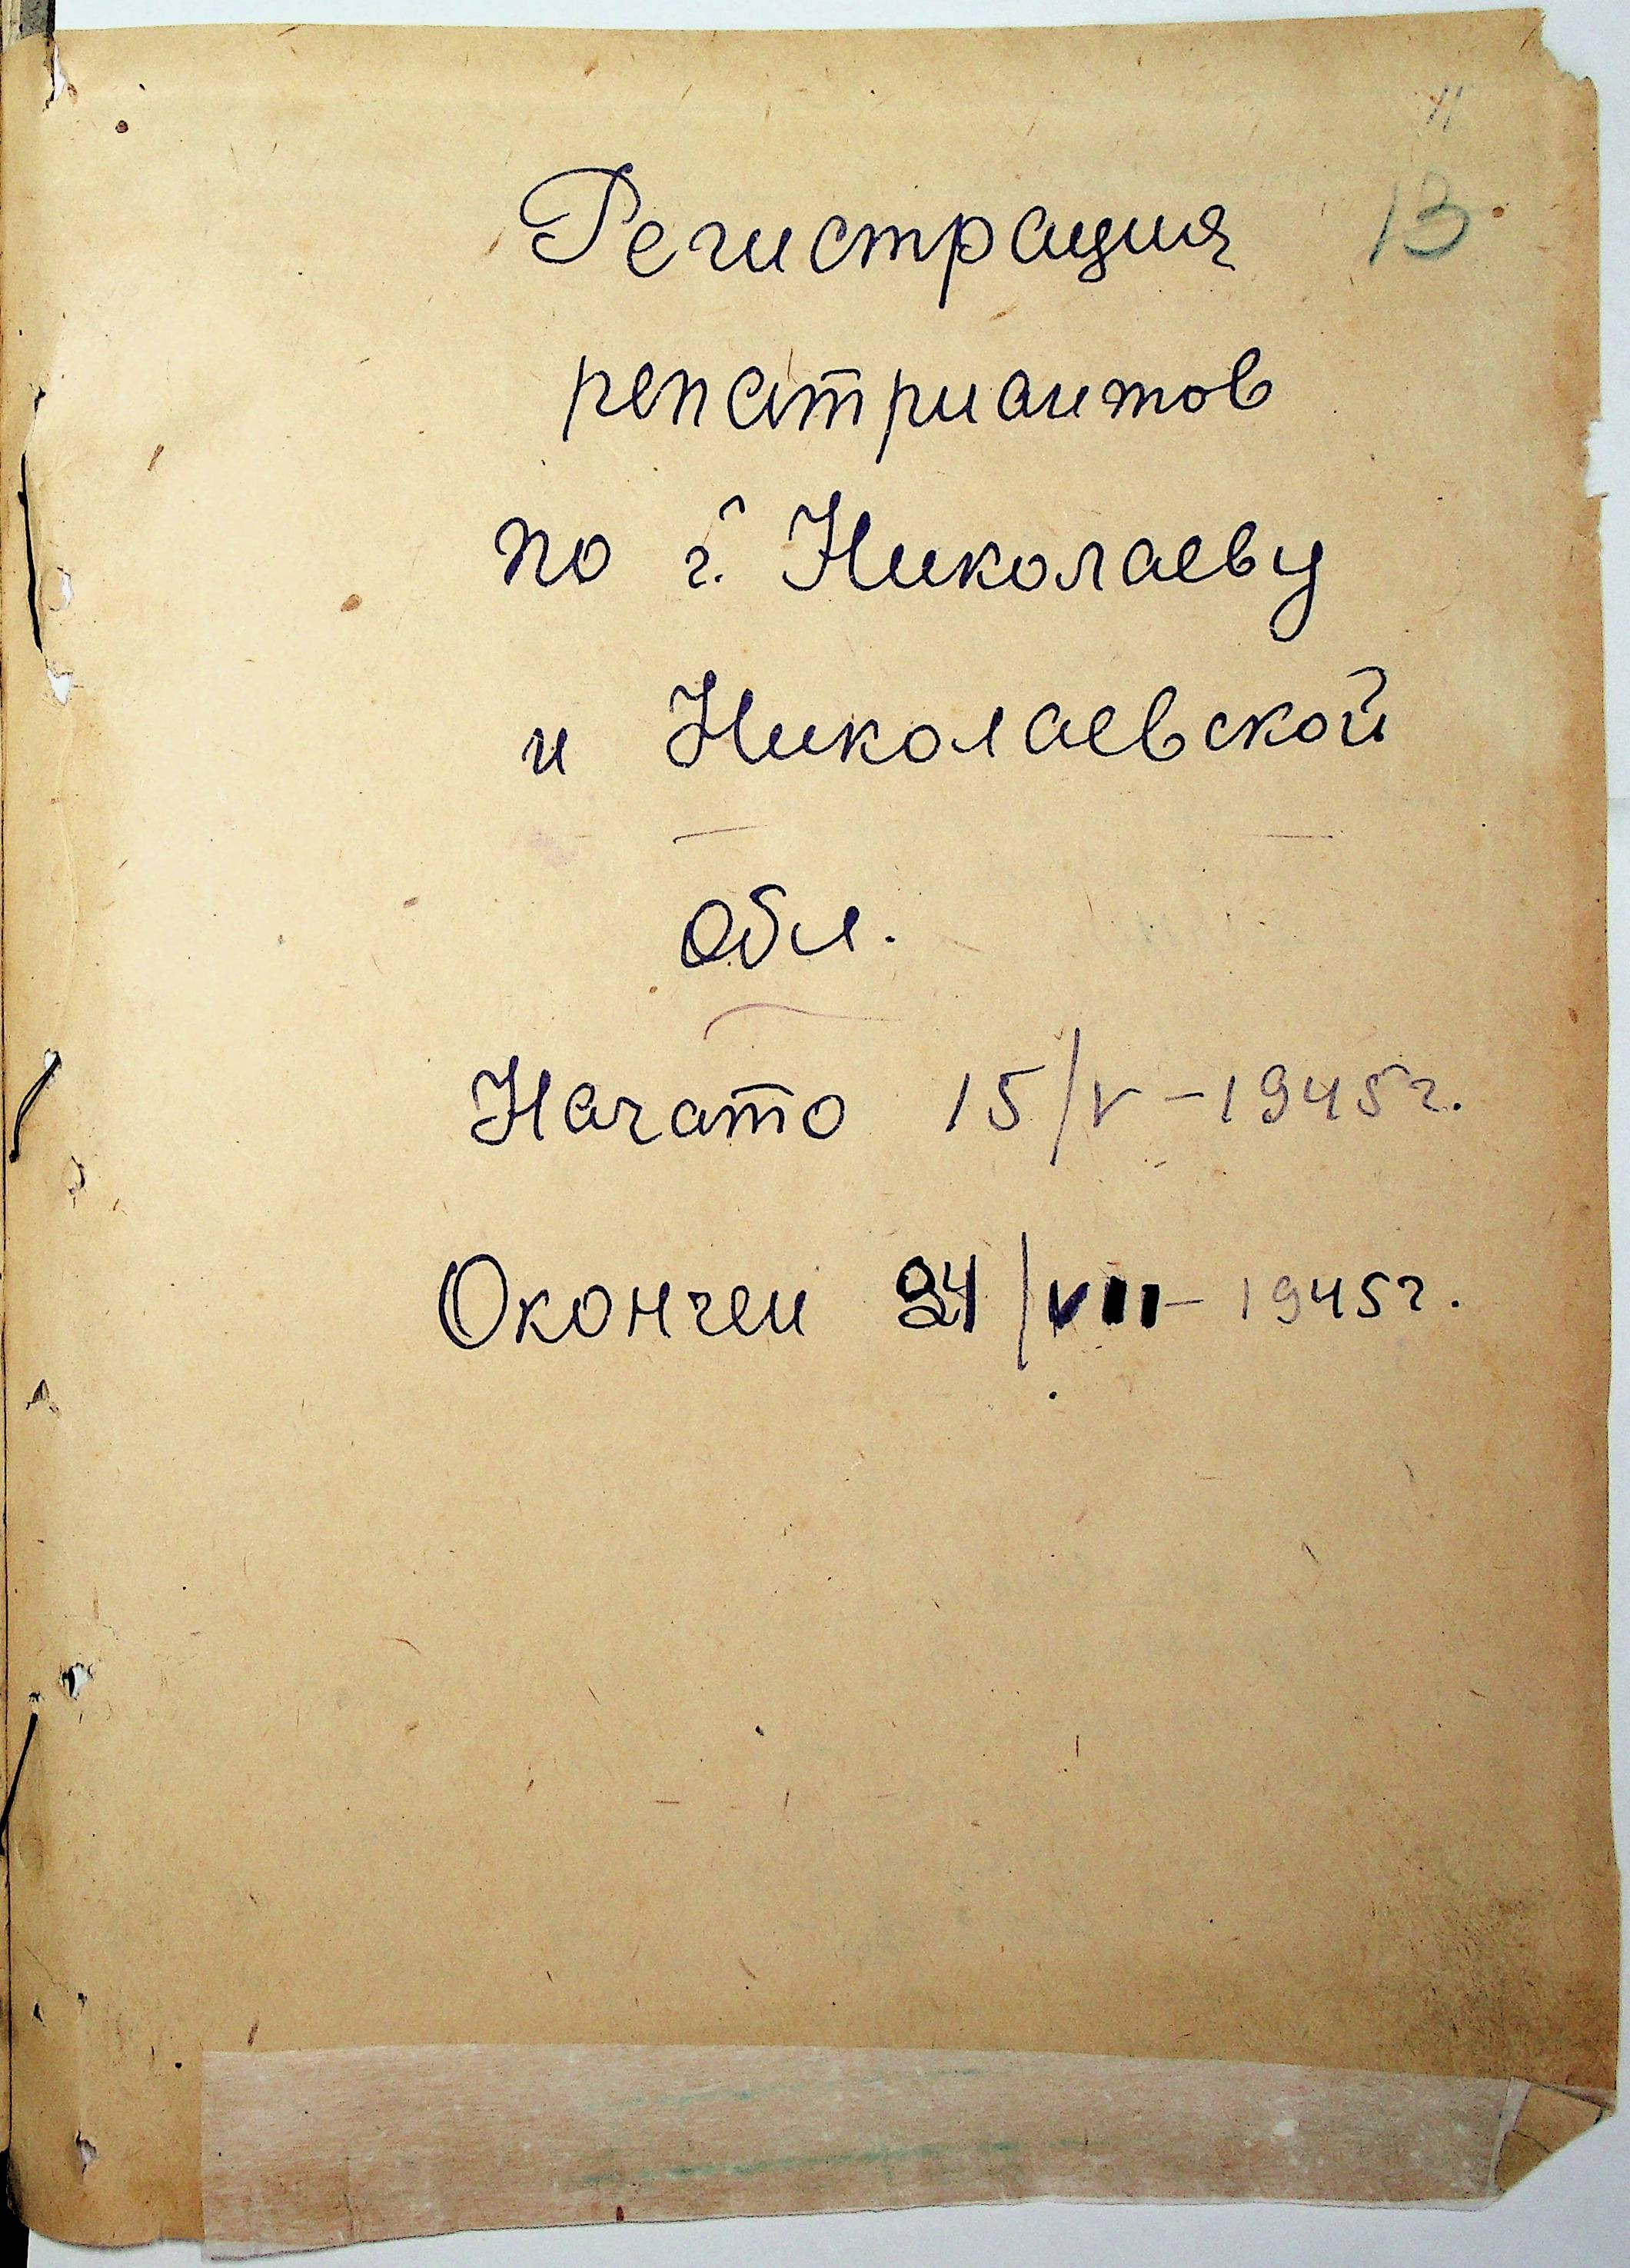 11
13
Регистрация
репатриантов
по г. Николаеву
и Николаевской
обл.
Начато 15/V-1945г.
Окончен 24/VII-1945г.